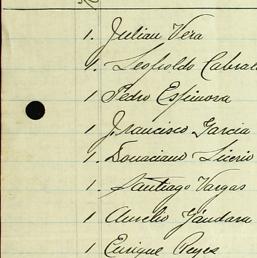 1. Julian Vera
1. Leofoldo Cabral
1 Pedro Espinosa
1 Francisco Garcia
1 Donaciano Licerio
1. Santiago Vargas
1 Aurelio Gándara
1 Enrique Reyes